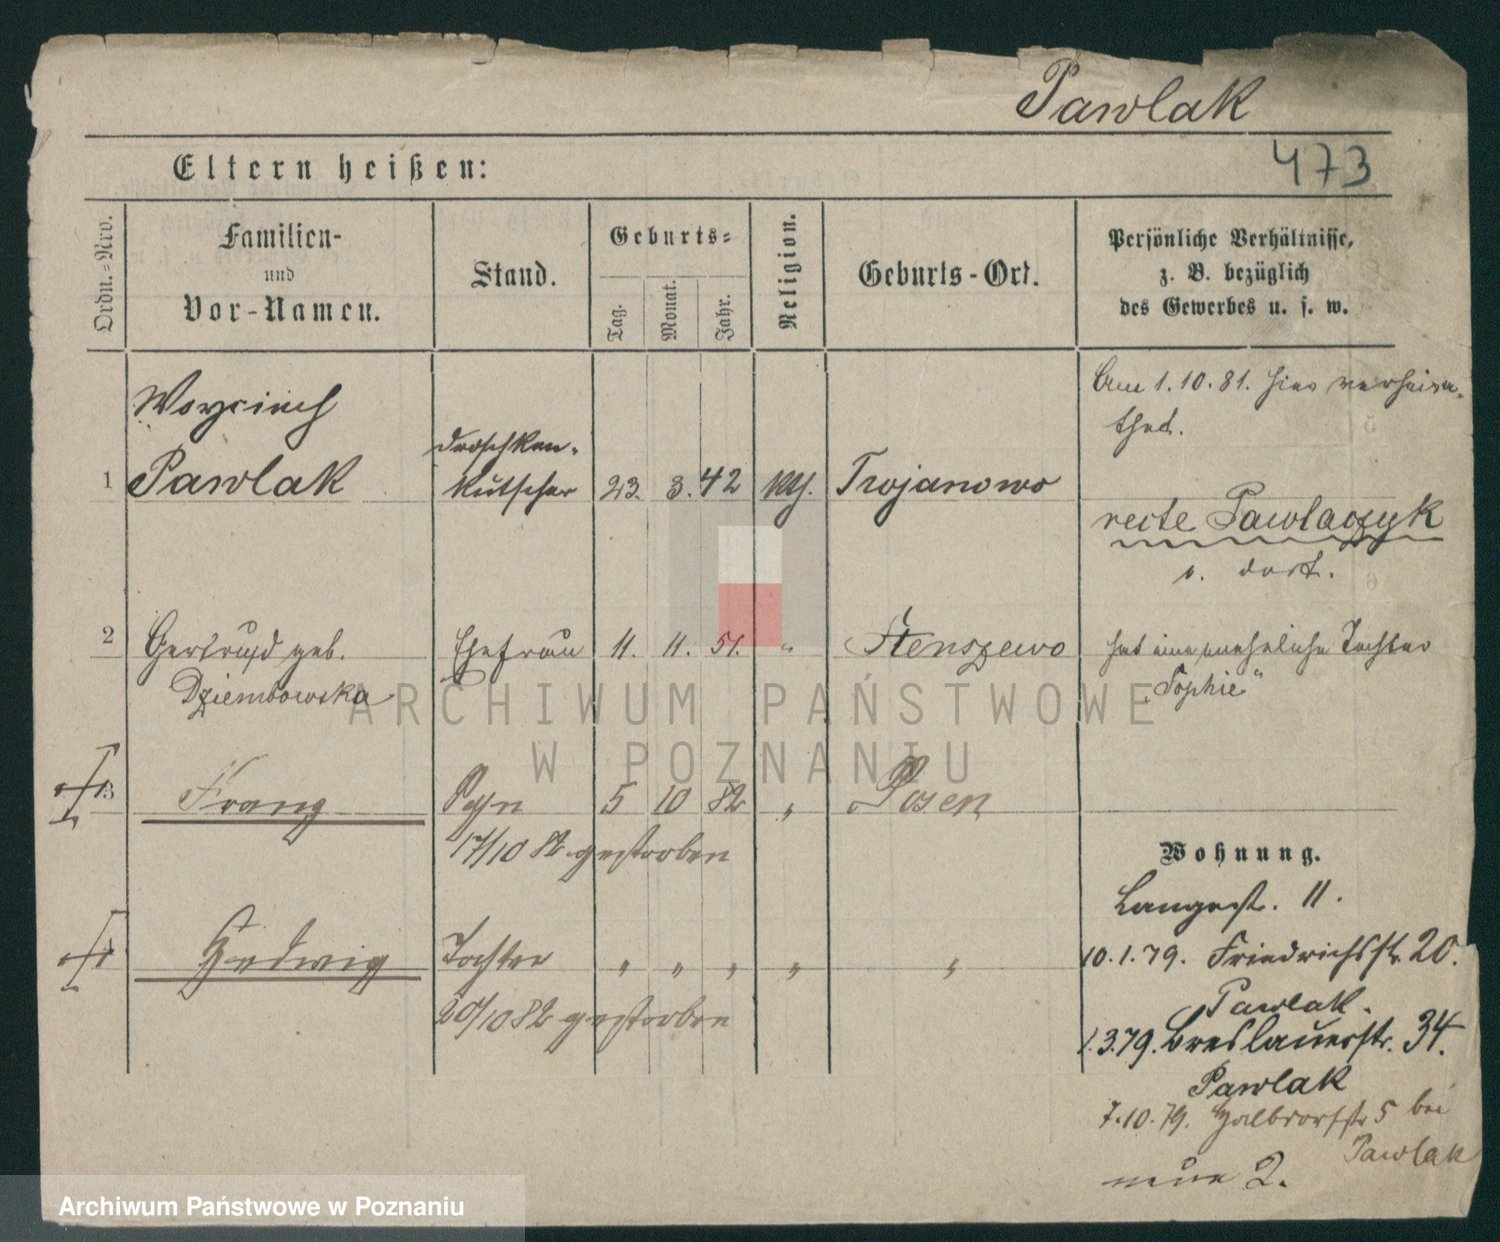 Pawlak
Eltern heißen:
473
Ordn.=Nro.
Familien-
und
Vor-Namen.
Stand.
Geburts=
Tag.
Monat.
Jahr.
Religion.
Geburts-Ort.
Persönliche Verhältnisse,
z. B. bezüglich
des Gewerbes u. s. w.
Woyciech
Am 1.10.81. hier verheira-
thet.
Droschken-
1 Pawlak Kutscher 23. 3. 42 kth. Trojanowo
recte Pawlaczyk
s. dort.
2 Gertrud geb. Ehefrau 11. 11. 51. " Stenszewo hat eine uneheliche Tochter
Dziembowska "Sophie"
3 Franz Sohn 5 10 82 " Posen
17/10 82 gestorben
Wohnung.
Langestr. 11.
4 Hedwig Tochter " " " " "
10.1.79. Friedrichsstr. 20.
Pawlak.
20/10 82 gestorben
1.3.79. Breslauerstr. 34.
Pawlak
7.10.79. Halbdorfstr 5 bei
Pawlak
neue 2.
ARCHIWUM PAŃSTWOWE
W POZNANIU
Archiwum Państwowe w Poznaniu